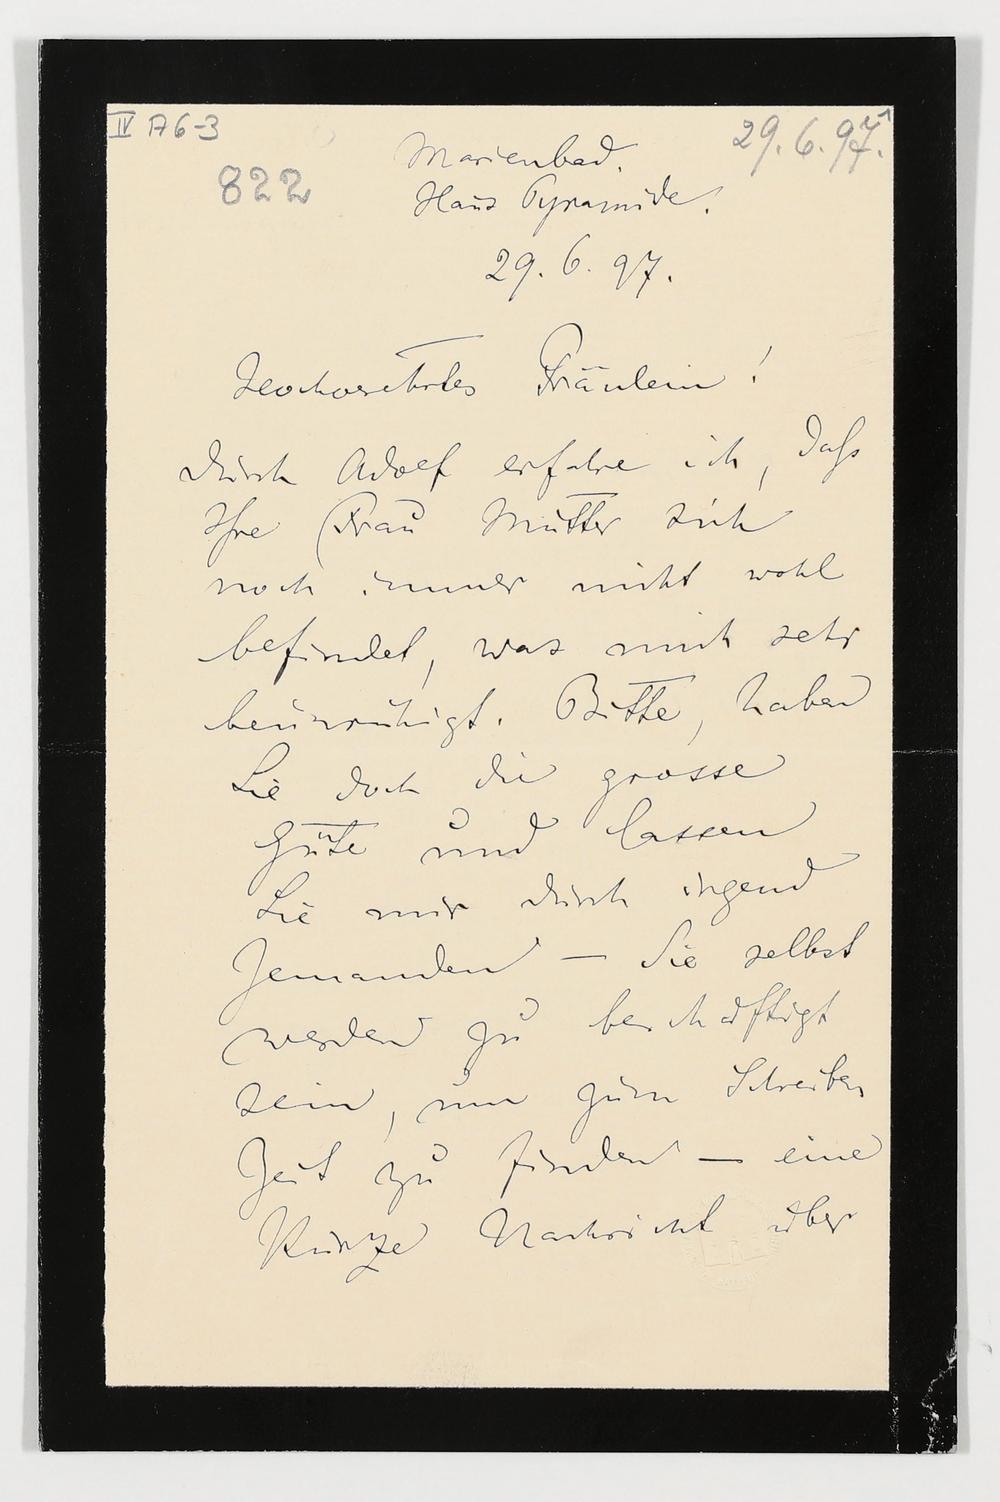 IV A6-3
29.6.97.
822
Marienbad.
Haus Pyramide.
29. 6. 97.
Hochverehrtes Fräulein!
Durch Adolf erfahre ich, daß
Ihre Frau Mutter sich
noch immer nicht wohl
befindet, was mich sehr
beunruhigt. Bitte, haben
Sie doch die grosse
Güte und lassen
Sie mir durch irgend
Jemanden – Sie selbst
werden zu beschäftigt
sein, um zum Schreiben
Zeit zu finden – eine
Kurze Nachricht über